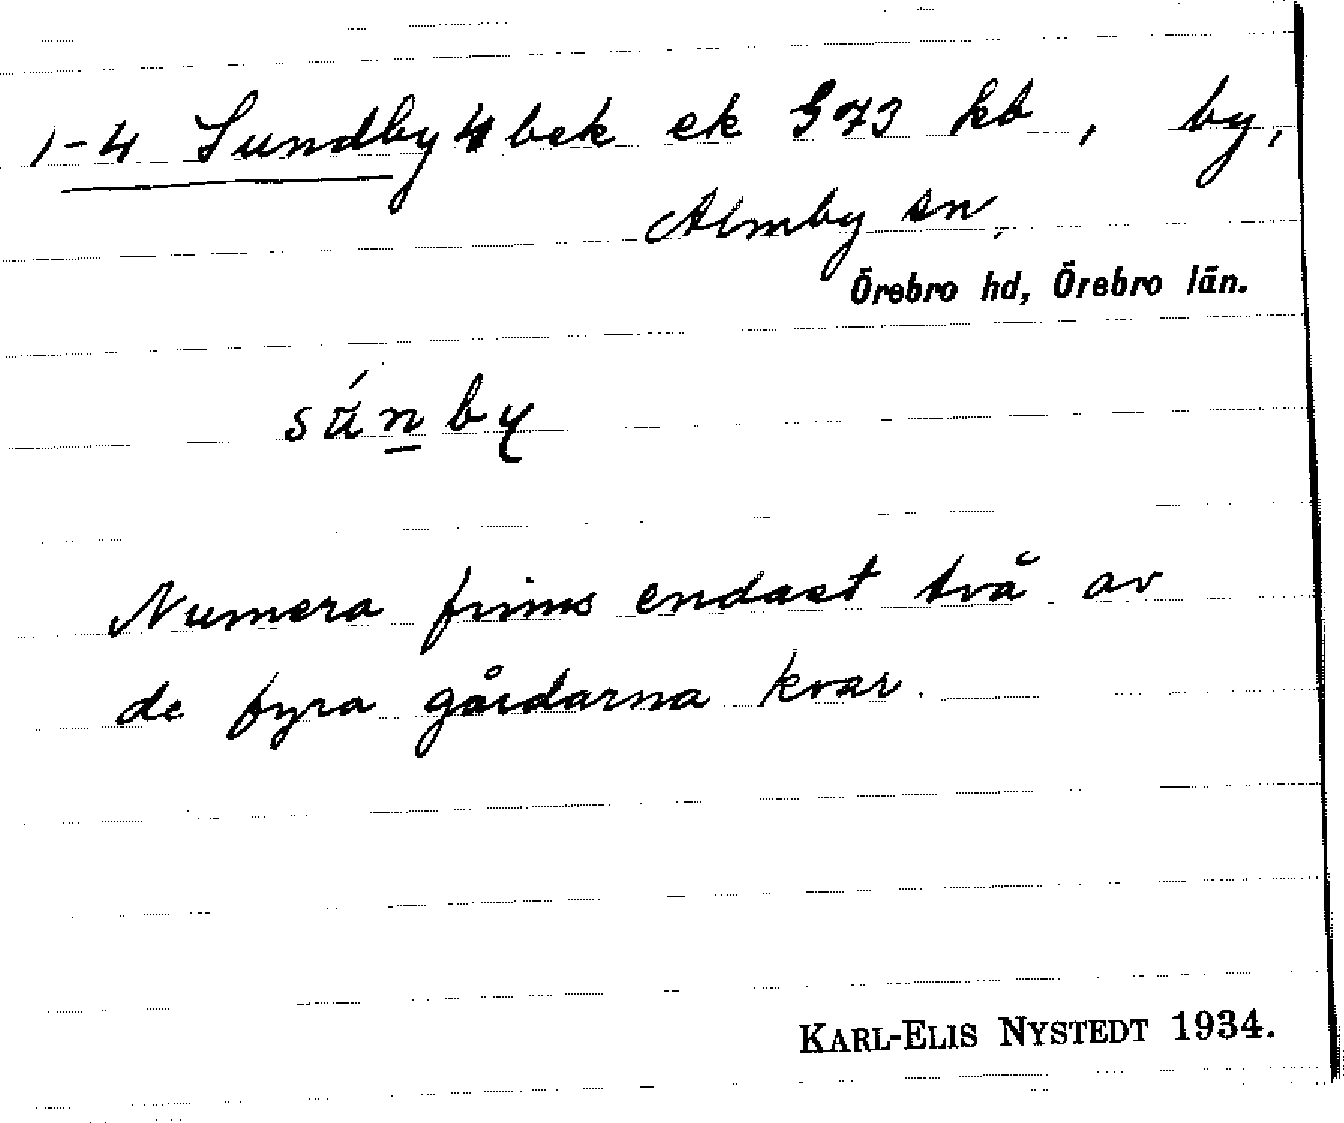 1-4 Sundby 4 bek ek G 73 kb, by,
Almby sn,
Örebro hd, Örebro län.
sú̄n̲by
Numera finns endast två av
de fyra gårdarna kvar.
KARL-ELIS NYSTEDT 1934.